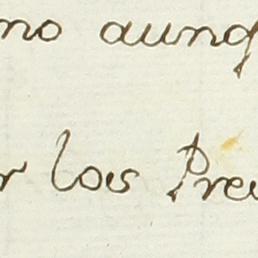 no aunq
r los Pre